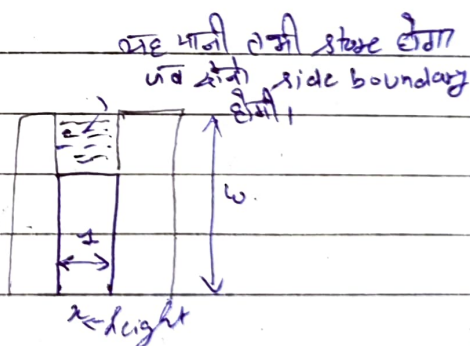 यह पानी तभी store होगा
जब दोनो side boundary
होगी।
w.
1
x ← height